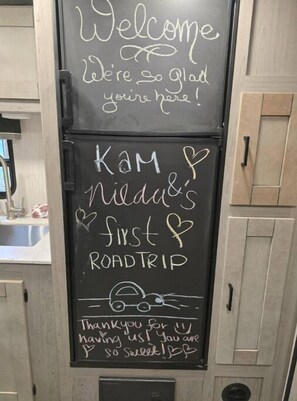 Welcome
We're so glad
you're here!
Kam
&
Nilda's
first
ROADTRIP
Thank you for
having us! You are
so sweet!